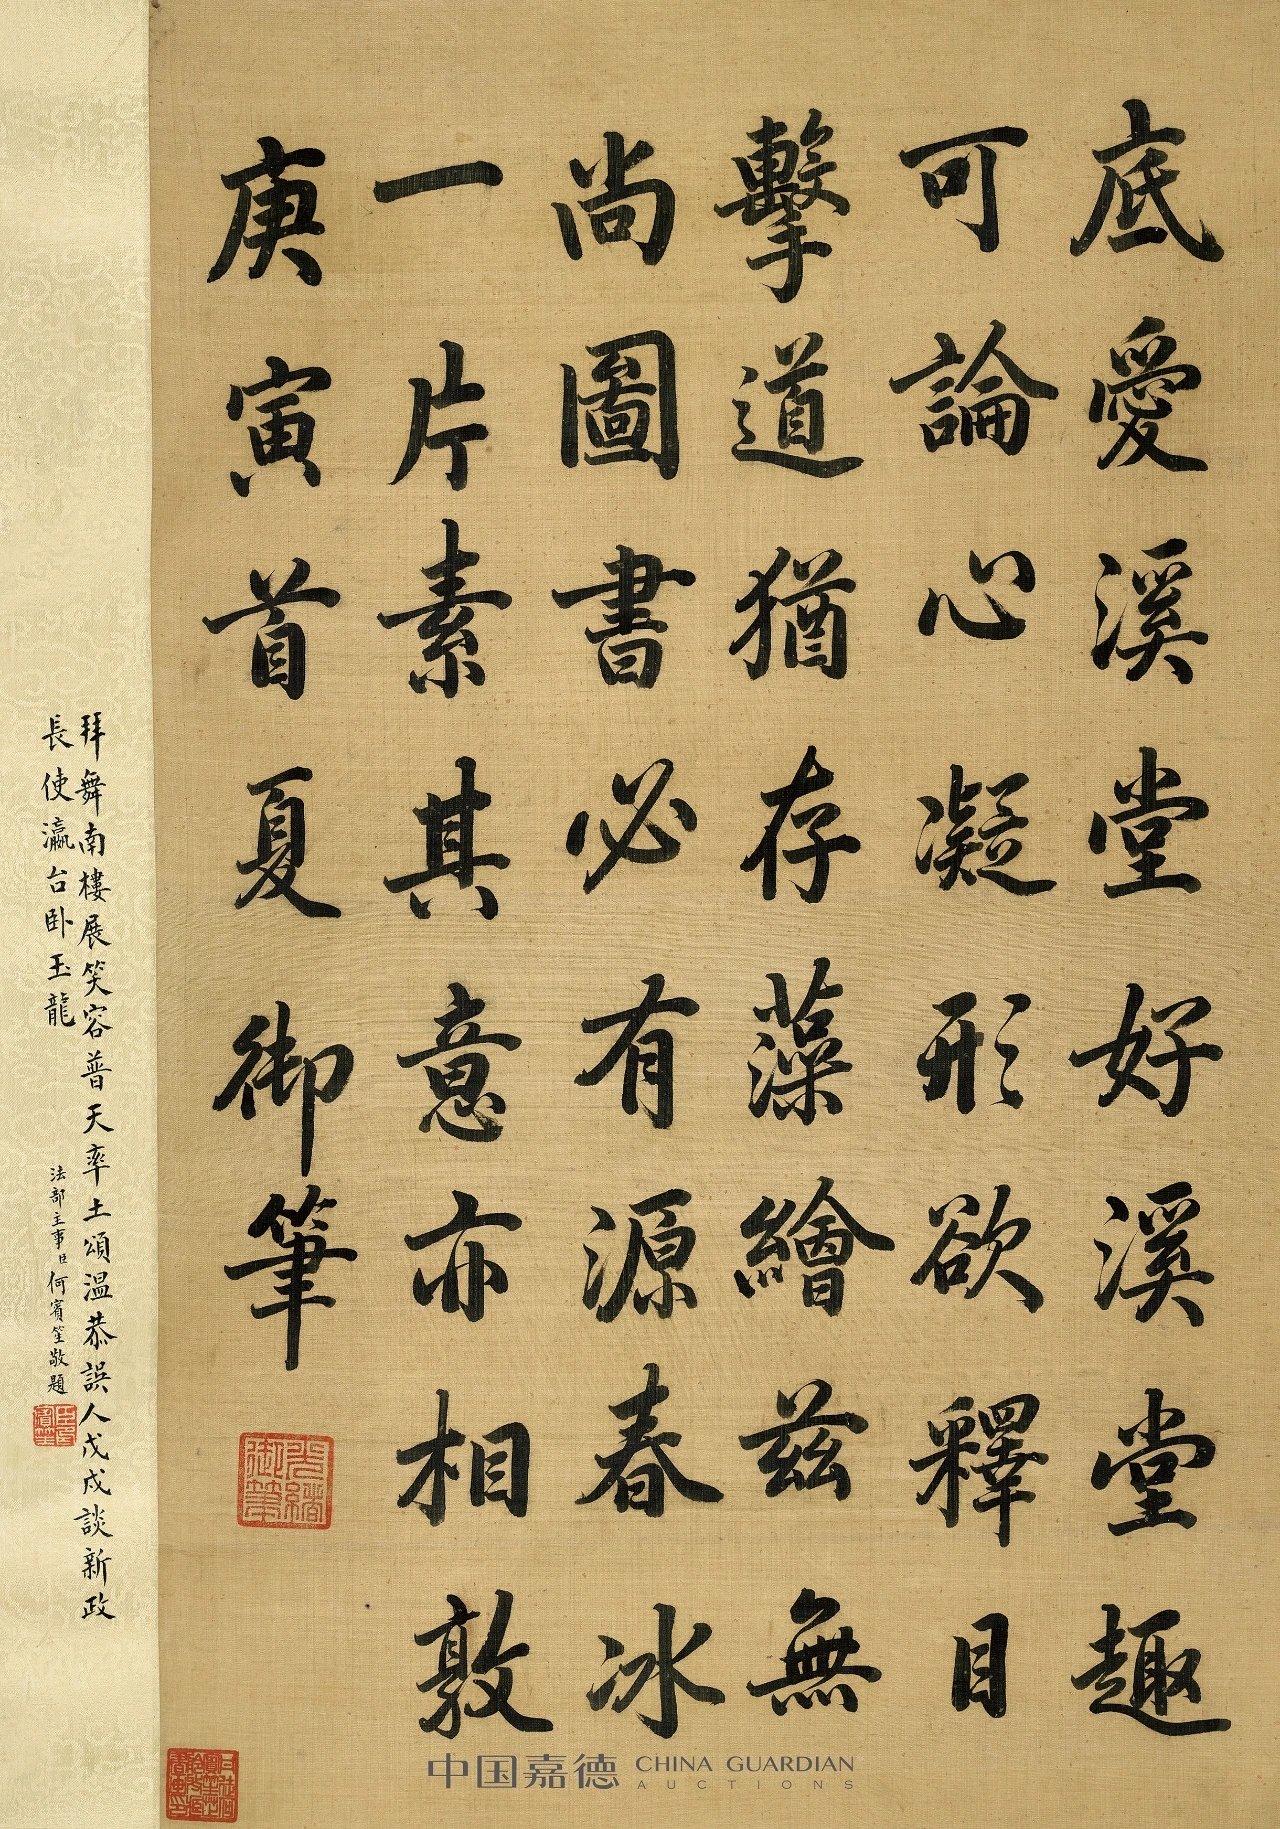 底愛溪堂好溪堂趣
可論心凝形欲釋目
擊道猶存藻繪茲無
尚圖書必有源春冰
一片素其意亦相敦
庚寅首夏御筆
光緒御筆
拜舞南樓展笑容普天率土頌温恭誤人戊戌談新政
長使瀛台卧玉龍
法部主事臣何賓笙敬題
中国嘉德 CHINA GUARDIAN
AUCTIONS